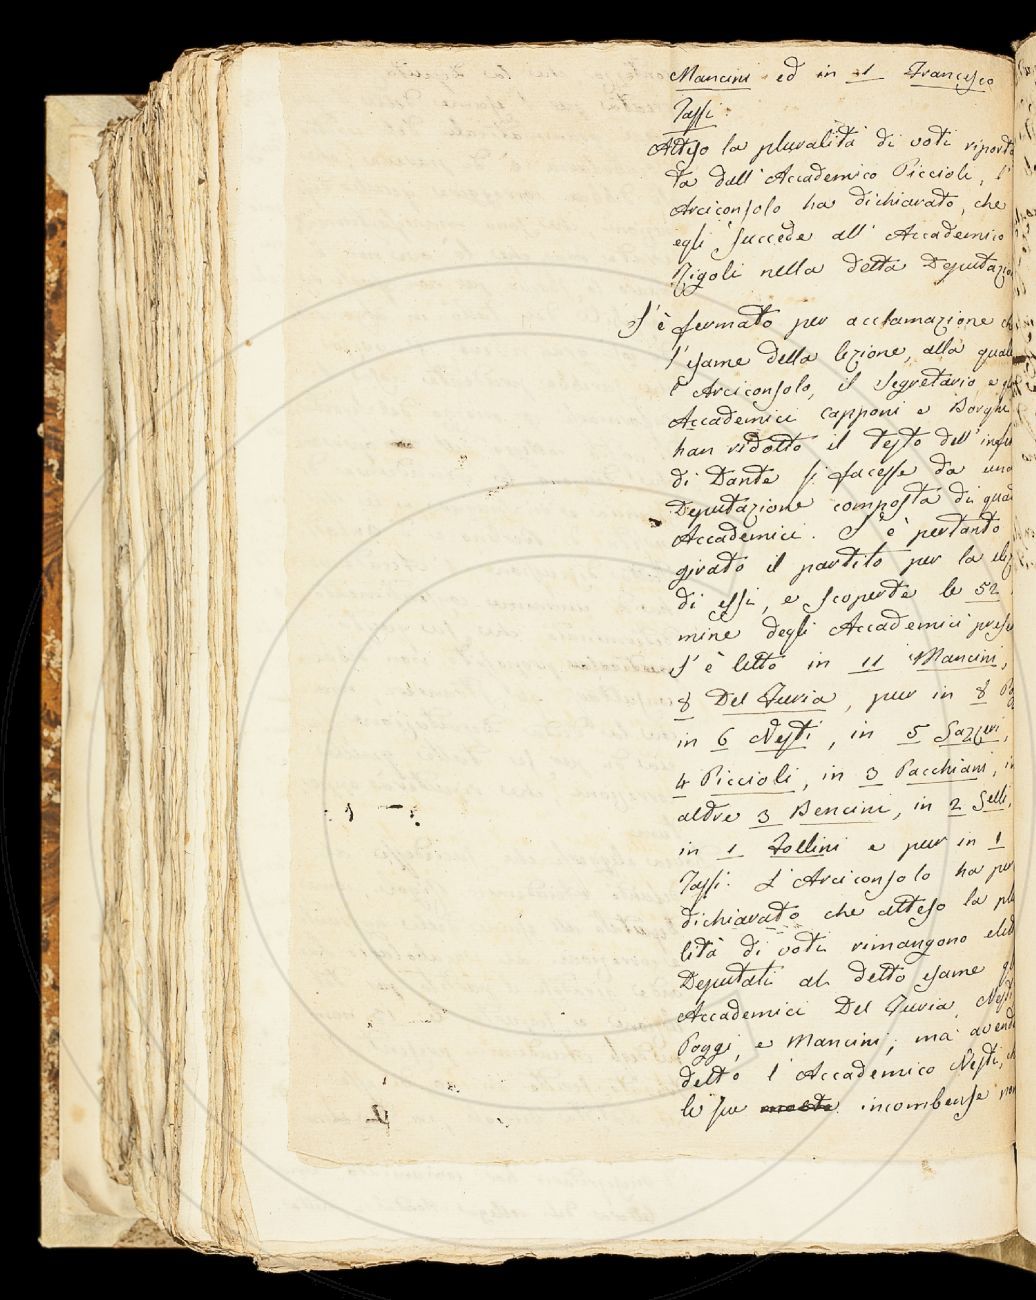 Mancini ed in 1 Francesco
Tassi.
Atteso la pluralità di voti riporta
ta dall'Accademico Piccioli, l'
Arciconsolo ha dichiarato, che
egli succede all' Accademico
Zigoli nella detta Deputazio
S'è fermato per acclamazione ch
l'esame della lezione, alla quale
l'Arciconsolo, il Segretario e
Accademici Capponi e Borghi
han ridotto il Testo dell'infe
di Dante si facesse da una
Deputazione composta di qua
Accademici. S'è pertanto
girato il partito per la ele
di essi, e scoperte le 52
mine degli Accademici prese
s'è letto in 11 Mancini,
8 Del Furia, pur in 8 Po
in 6 Nesti, in 5 Sazzeri,
4 Piccioli, in 3 Pacchiani, in
altre 3 Bencini, in 2 Selli,
in 1 Follini e pur in 1
Tassi. L'Arciconsolo ha per
dichiarato che atteso la plu
lità di voti rimangono elet
Deputati al detto esame gli
Accademici Del Furia, Nesti
Poggi, e Mancini; ma avend
detto l'Accademico Nesti, ch
le sue incombense non